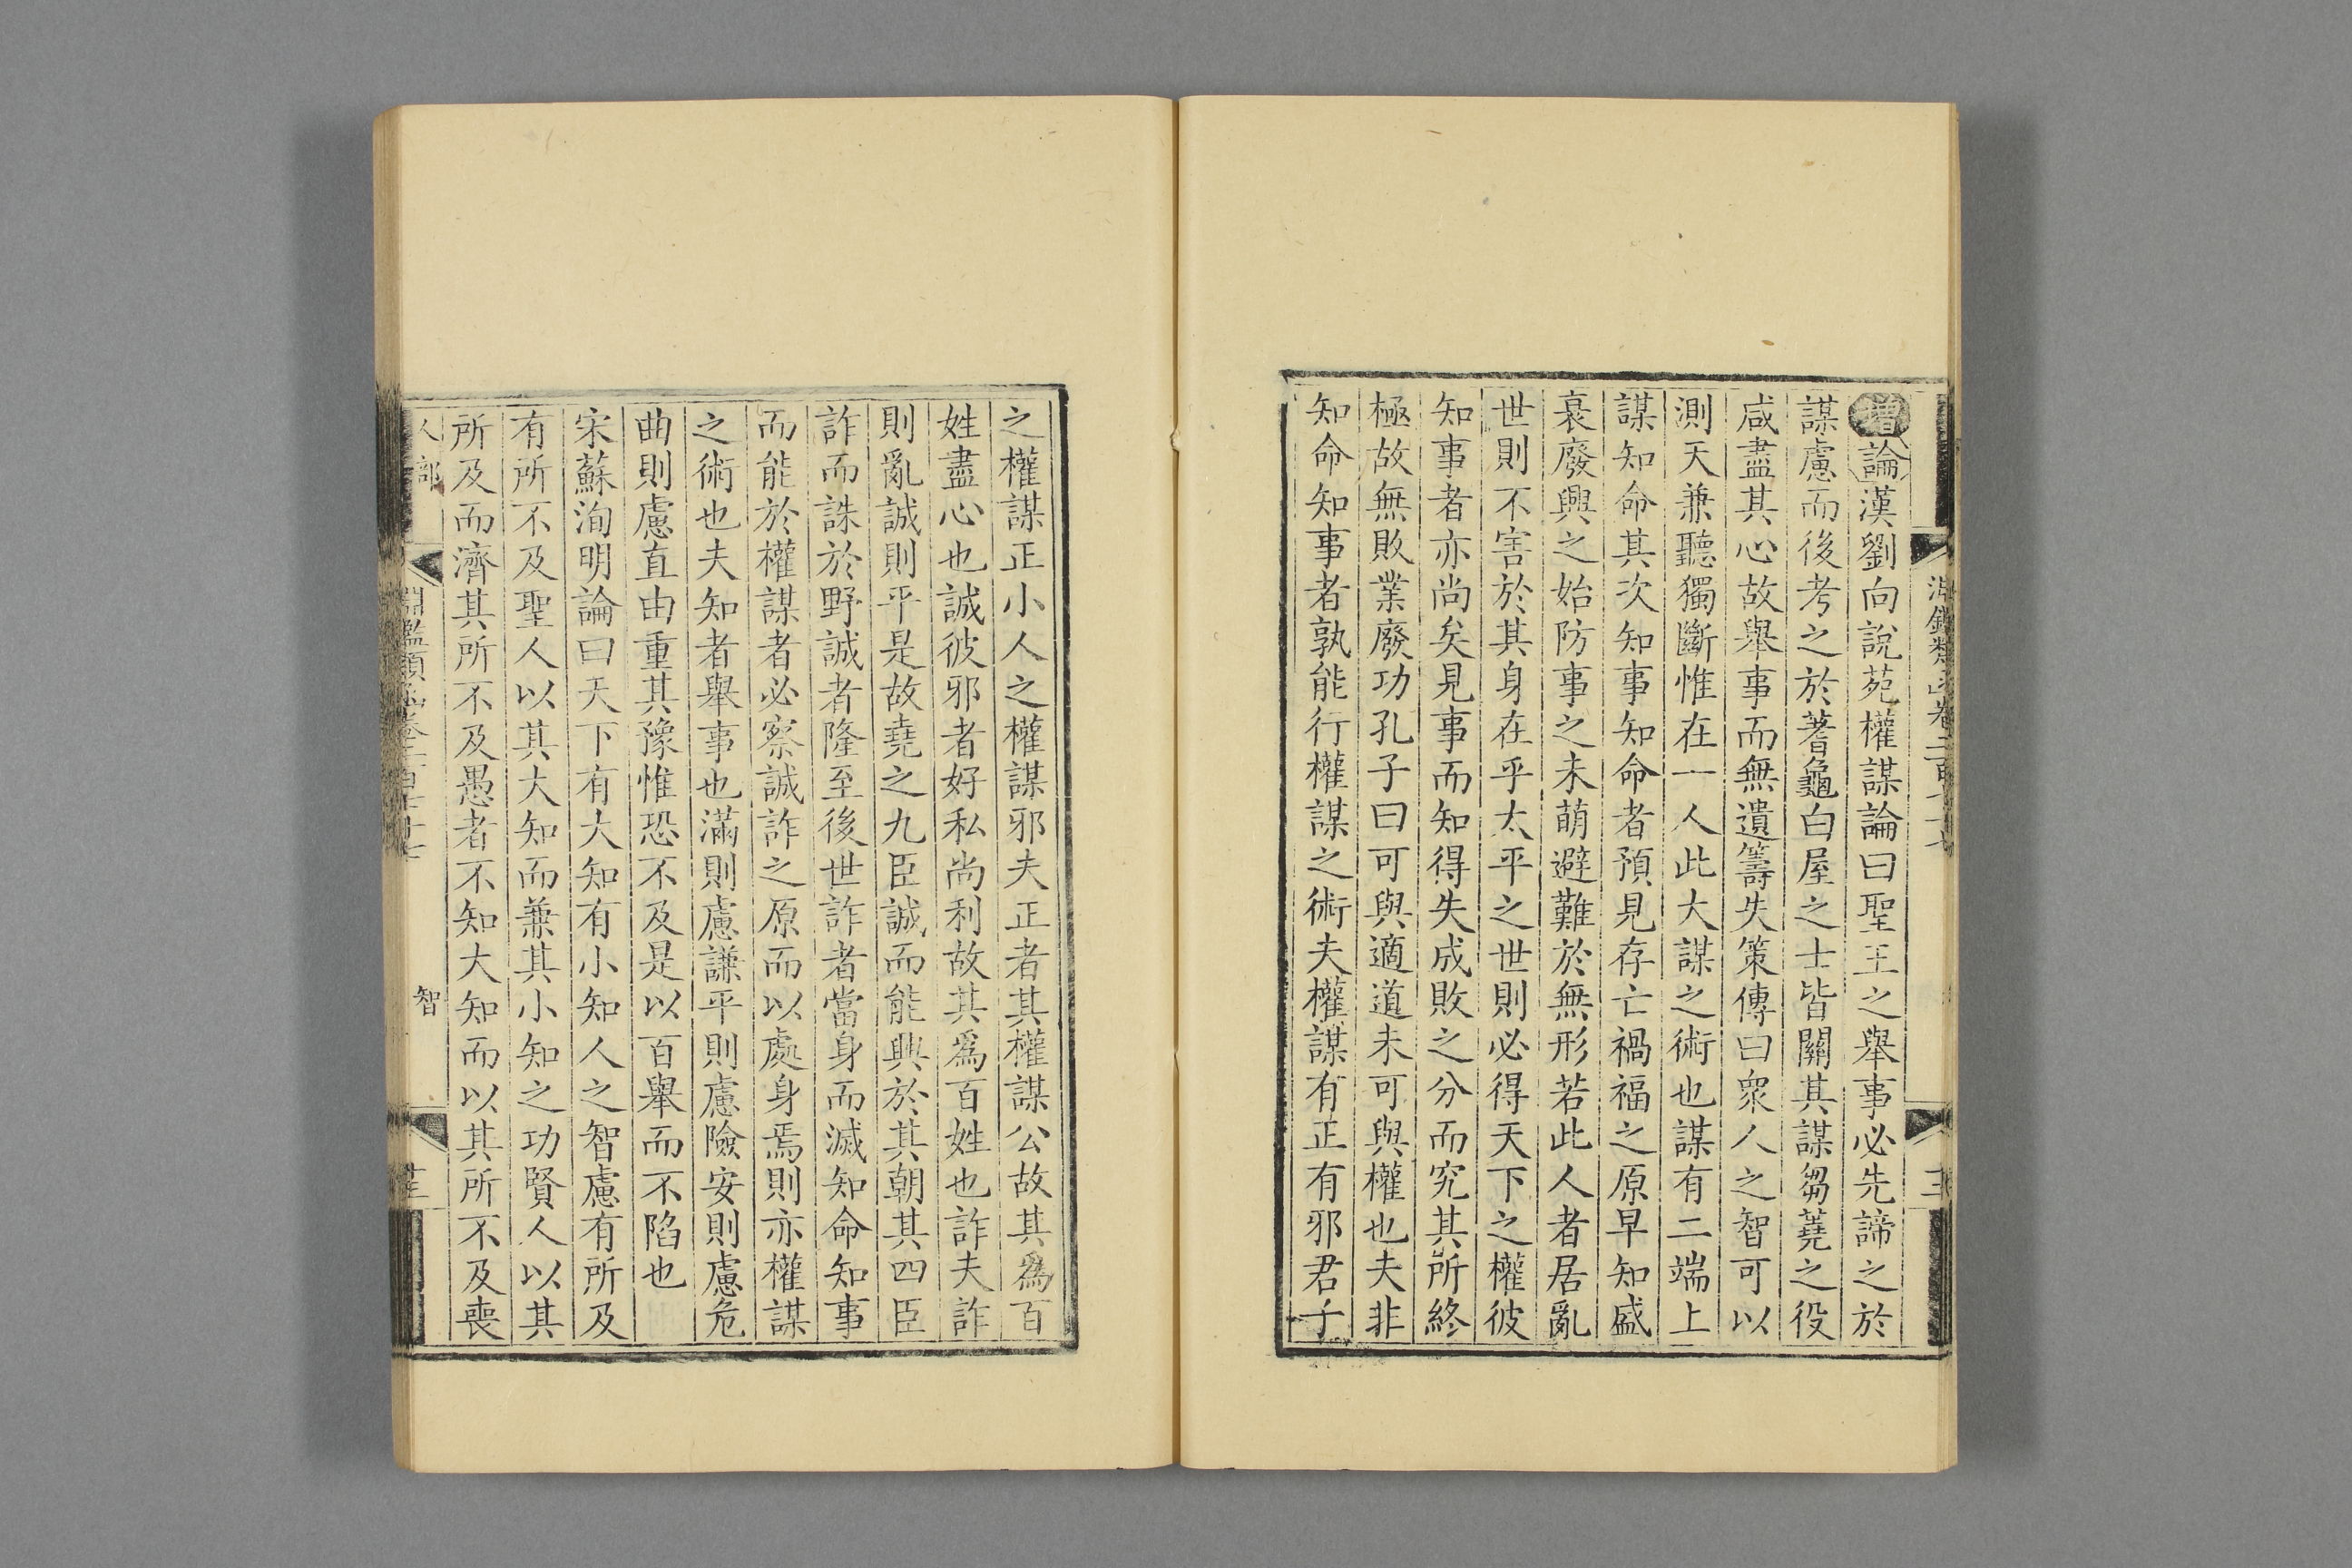 增論漢劉向說苑權謀論曰聖王之舉事必先諦之於
謀慮而後考之於蓍龜白屋之士皆關其謀芻蕘之役
咸盡其心故舉事而無遺籌失策傳曰衆人之智可以
測天兼聽獨斷惟在一人此大謀之術也謀有二端上
謀知命其次知事知命者預見存亡禍福之原早知盛
衰廢興之始防事之未萌避難於無形若此人者居亂
世則不害於其身在乎太平之世則必得天下之權彼
知事者亦尚矣見事而知得失成敗之分而究其所終
極故無敗業廢功孔子曰可與適道未可與權也夫非
知命知事者孰能行權謀之術夫權謀有正有邪君子
之權謀正小人之權謀邪夫正者其權謀公故其爲百
姓盡心也誠彼邪者好私尚利故其爲百姓也詐夫詐
則亂誠則平是故堯之九臣誠而能興於其朝其四臣
詐而誅於野誠者隆至後世詐者當身而滅知命知事
而能於權謀者必察誠詐之原而以處身焉則亦權謀
之術也夫知者舉事也滿則慮謙平則慮險安則慮危
曲則慮直由重其豫惟恐不及是以百舉而不陷也
宋蘇洵明論曰天下有大知有小知人之智慮有所及
有所不及聖人以其大知而兼其小知之功賢人以其
所及而濟其所不及愚者不知大知而以其所不及喪
人部
淵鑑類函卷二百七十七
智